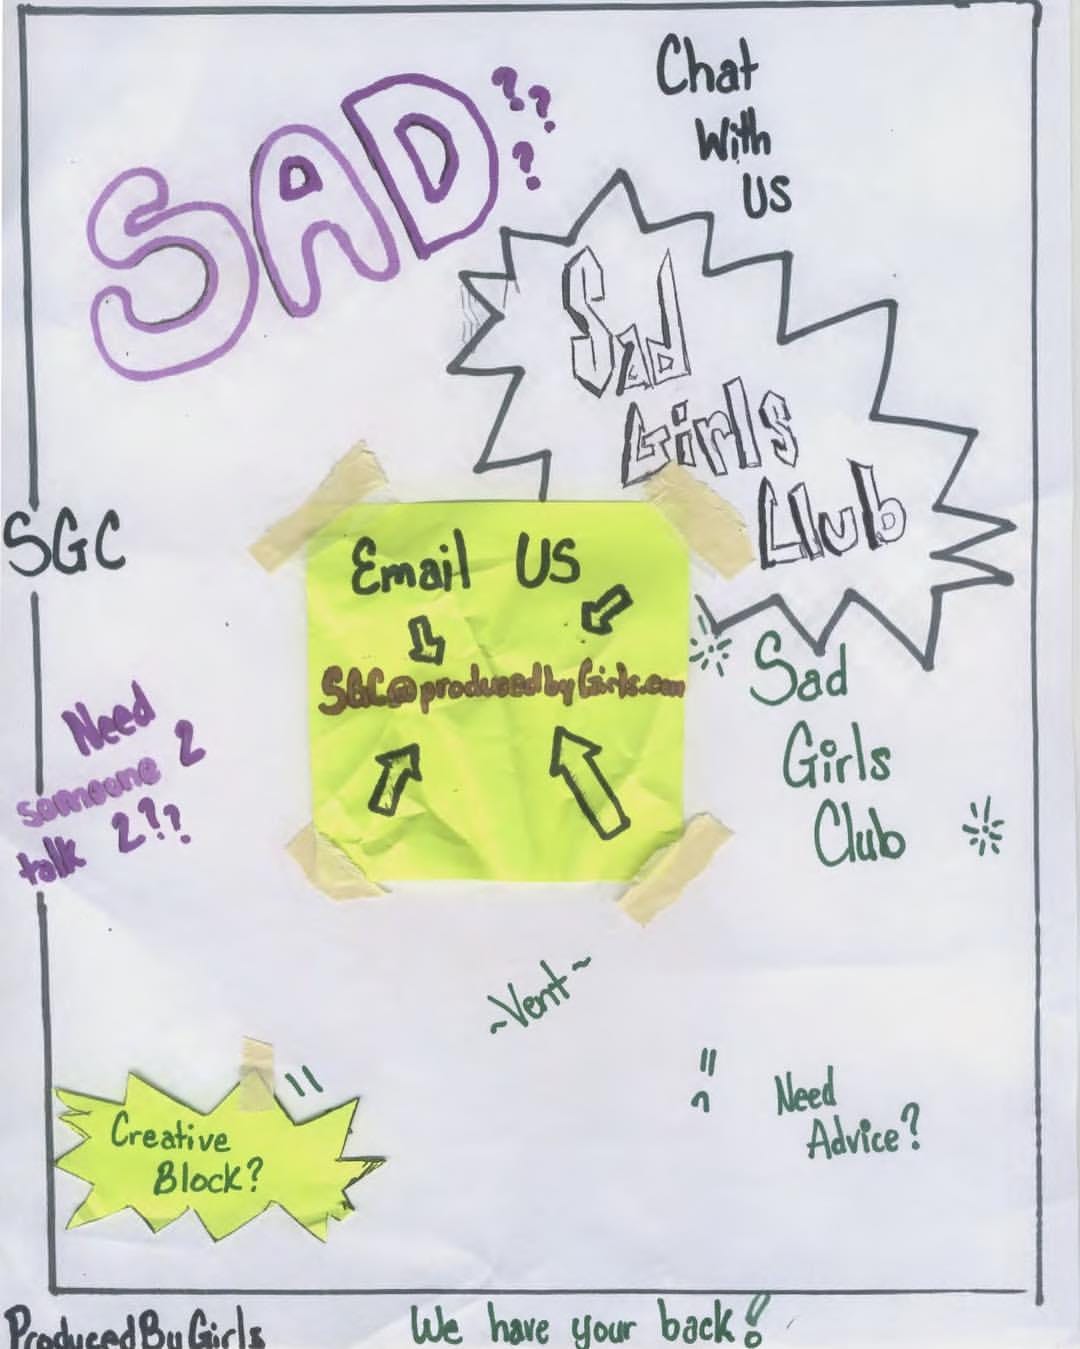 SAD???
Chat
With
US
Sad
Girls
Club
SGC
Email US
SGC@producedbyGirls.com
Need
someone 2
talk 2??
Sad
Girls
Club
~Vent~
Creative
Block?
Need
Advice?
ProducedByGirls
We have your back!